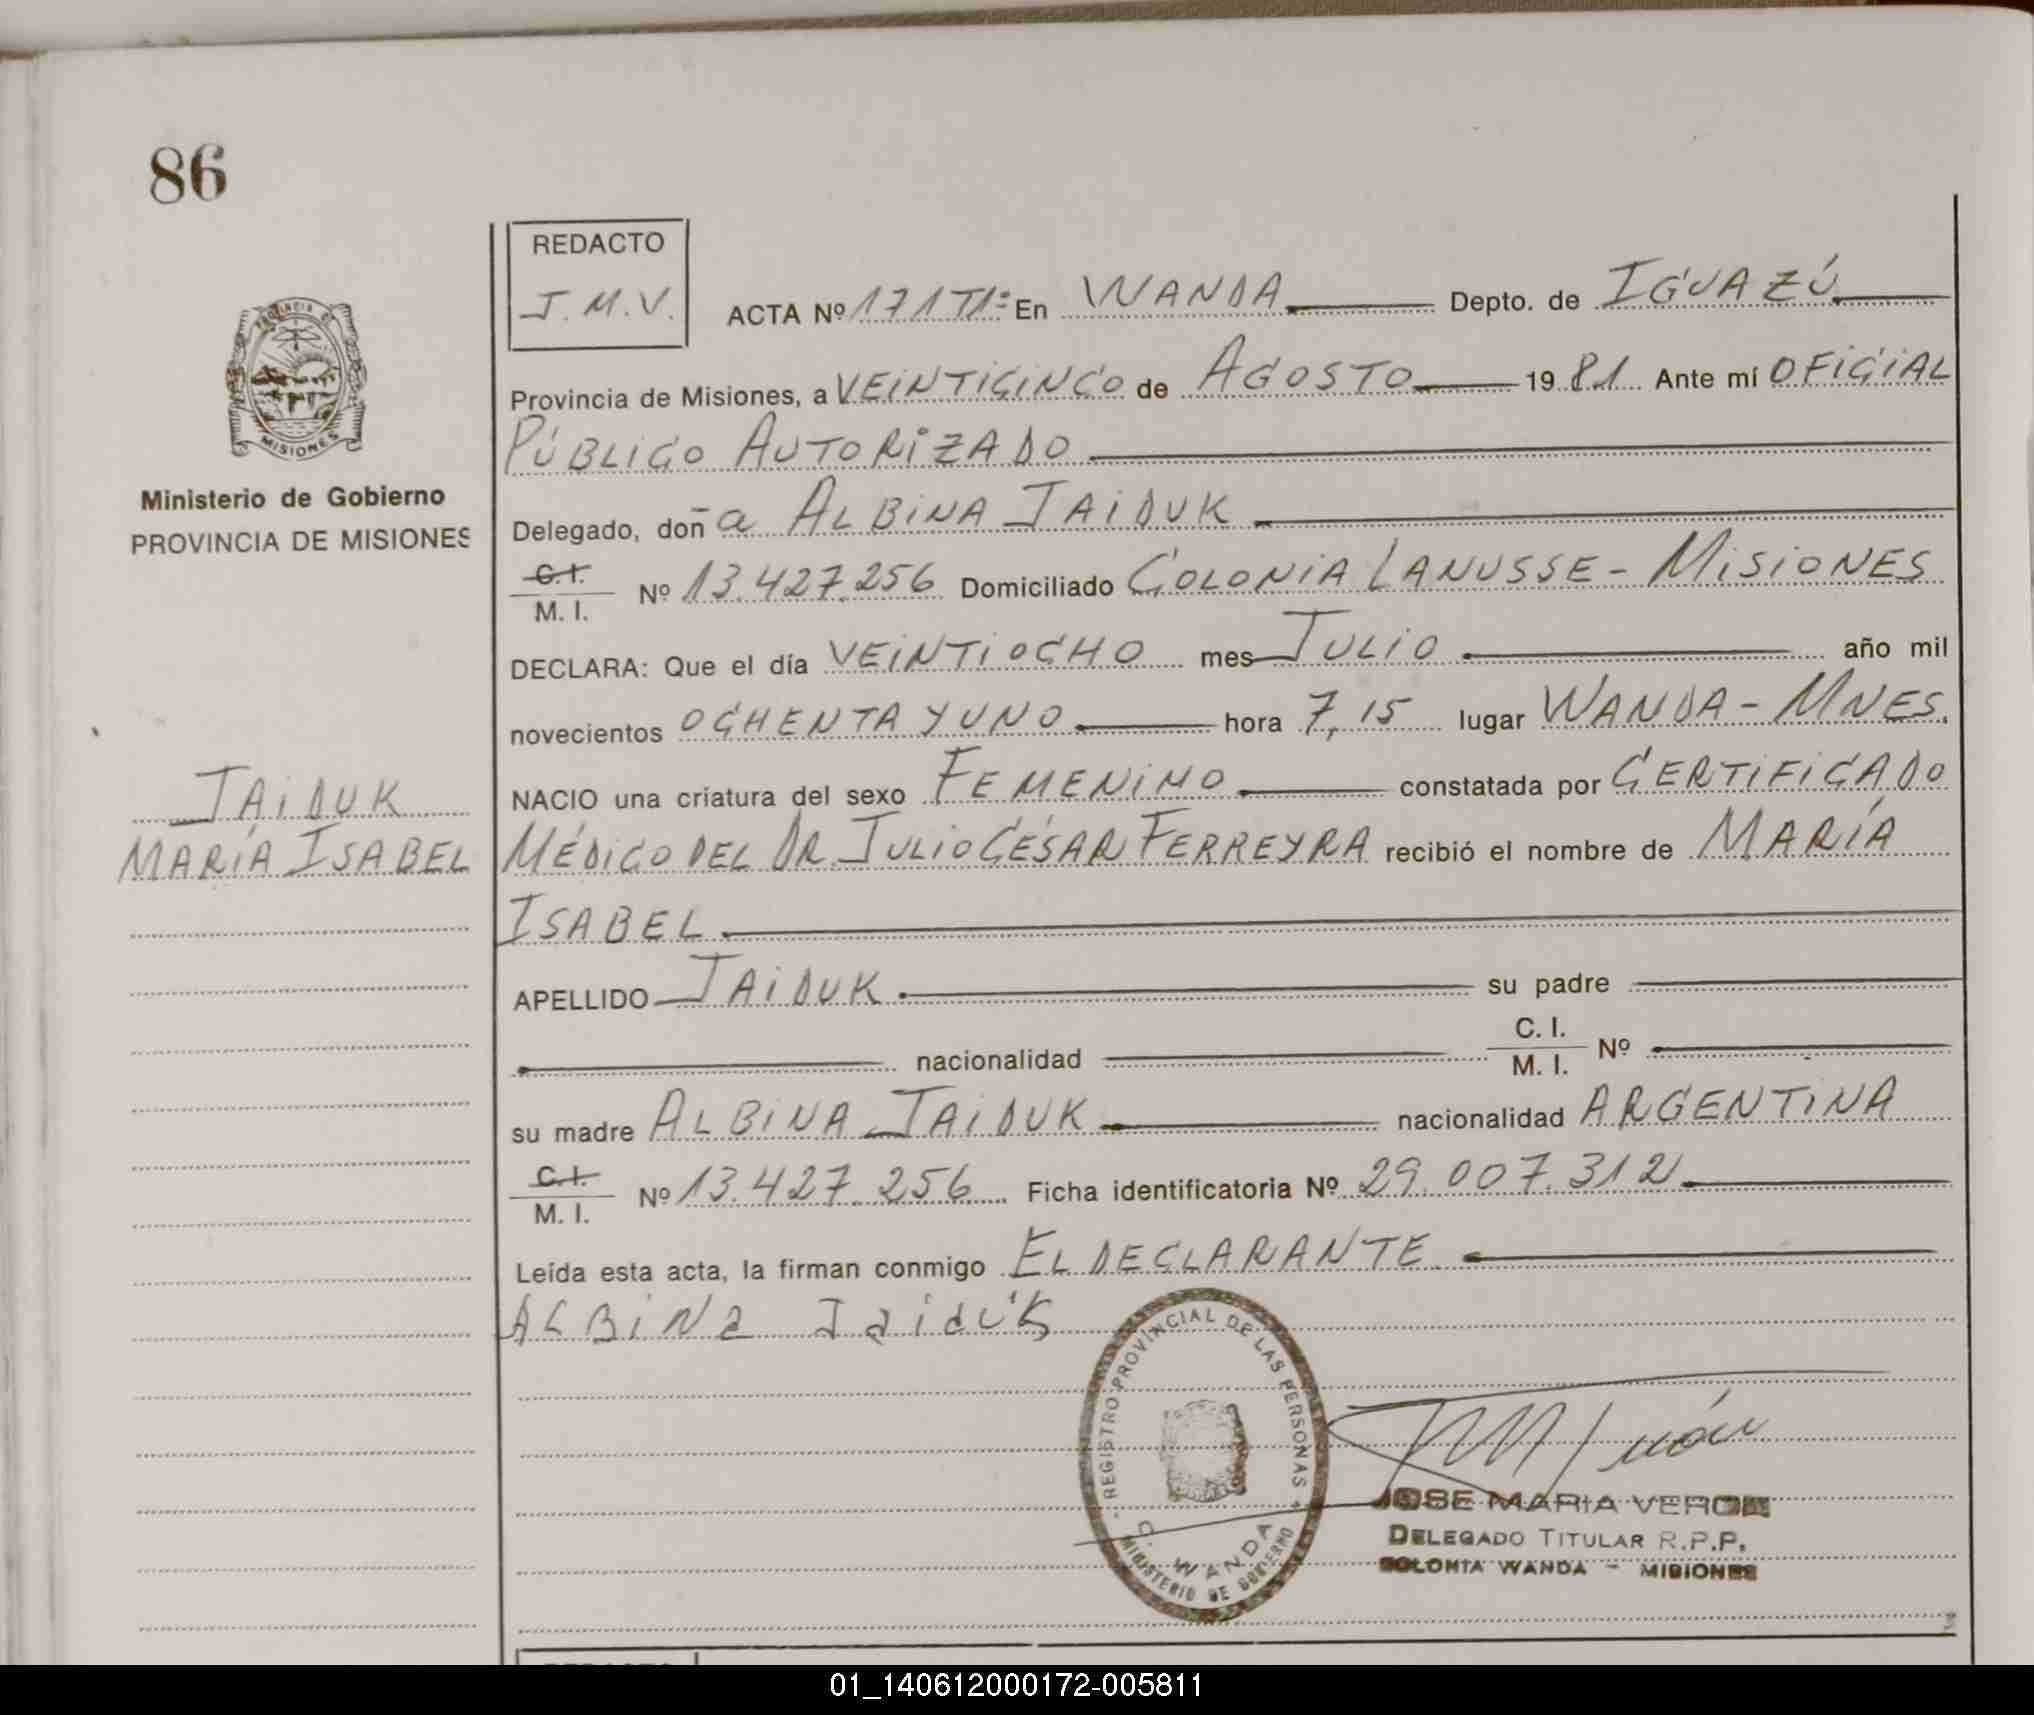 86
REDACTO
J. M. V.
ACTA Nº 171 T1º En WANDA Depto. de IGUAZÚ
Provincia de Misiones, a VEINTICINCO de AGOSTO 19 81 Ante mí OFICIAL
PÚBLICO AUTORIZADO
Delegado, doña ALBINA JAIDUK
C. I.
M. I. Nº 13.427.256 Domiciliado COLONIA LANUSSE - MISIONES
DECLARA: Que el día VEINTIOCHO mes JULIO año mil
novecientos OCHENTA Y UNO hora 7,15 lugar WANDA - MNES.
NACIO una criatura del sexo FEMENINO constatada por CERTIFICADO
MÉDICO DEL DR. JULIO CÉSAR FERREYRA recibió el nombre de MARÍA
ISABEL
APELLIDO JAIDUK su padre
nacionalidad C. I.
M. I. Nº
su madre ALBINA JAIDUK nacionalidad ARGENTINA
C. I.
M. I. Nº 13.427.256 Ficha identificatoria Nº 29.007.312
Leída esta acta, la firman conmigo EL DECLARANTE
ALBiNa JaidúK
PROVINCIA DE MISIONES
Ministerio de Gobierno
PROVINCIA DE MISIONES
JAIDUK
MARÍA ISABEL
REGISTRO PROVINCIAL DE LAS PERSONAS
C. WANDA
MINISTERIO DE GOBIERNO
JOSE MARIA VERON
DELEGADO TITULAR R.P.P.
COLONIA WANDA - MISIONES
01_140612000172-005811